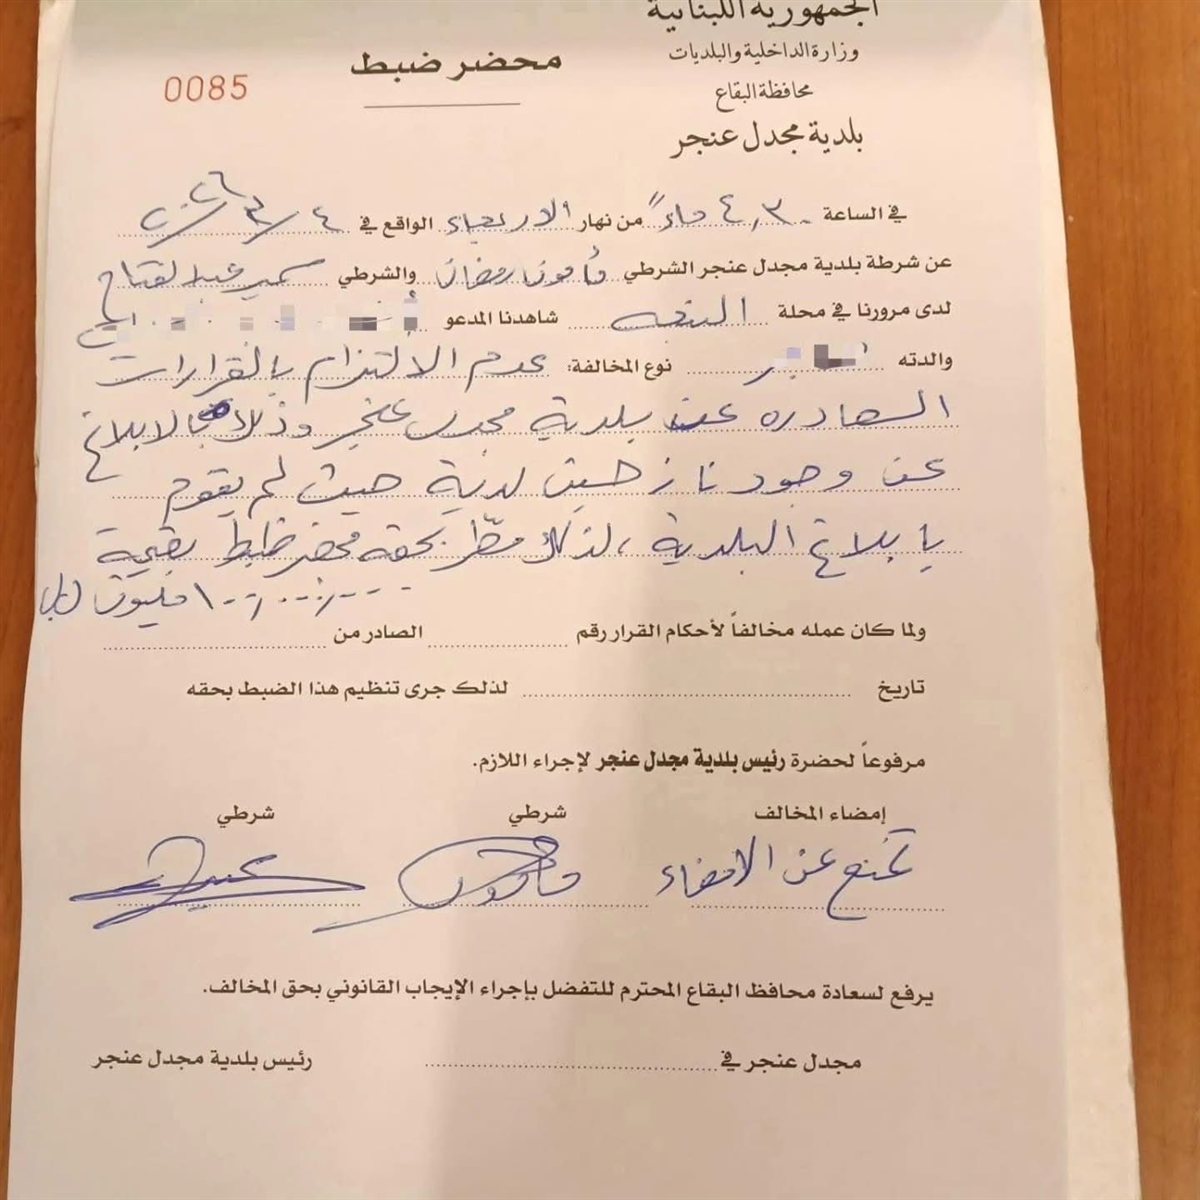 الجمهورية اللبنانية
وزارة الداخلية والبلديات
محافظة البقاع
بلدية مجدل عنجر
محضر ضبط
0085
في الساعة ٤,٣٠ مساءً من نهار الاربعاء الواقع في ٤/٣/٢٠٢٦
عن شرطة بلدية مجدل عنجر الشرطي مأمون رمضان والشرطي سمير عبد الفتاح
لدى مرورنا في محلة شاهدنا المدعو
والدته نوع المخالفة: عدم الالتزام بالقرارات
الصادره عن بلدية مجدل عنجر وذلك بالابلاغ
عن وجود نازحين لدية حيث لم يقوم
بابلاغ البلدية، لذلك سطر بحقه محضر ضبط بقيمة
١٠٠,٠٠٠,٠٠٠ مليون ل.ل
ولما كان عمله مخالفاً لأحكام القرار رقم الصادر من
تاريخ لذلك جرى تنظيم هذا الضبط بحقه
مرفوعاً لحضرة رئيس بلدية مجدل عنجر لإجراء اللازم.
إمضاء المخالف شرطي شرطي
تمنع عن الامضاء مأمون
يرفع لسعادة محافظ البقاع المحترم للتفضل بإجراء الإيجاب القانوني بحق المخالف.
مجدل عنجر في رئيس بلدية مجدل عنجر